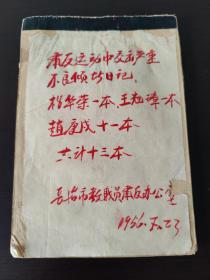 肃反运动中交出严重
不良倾向日记
程华荣一本、王旭诗一本
赵庚戌十一本
共计十三本
长治市教职员肃反办公室
1956.元.23